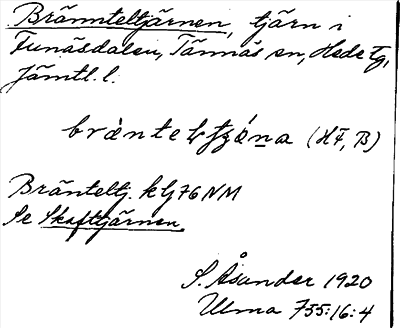 Brännteltjärnen, tjärn i
Funäsdalen, Tännäs sn, Hede tg,
Jämtl. l.
(HF, B)
Bränteltj. kbj 76 NM
Se Skaftjärnen
S. Åsander 1920
Ulma 735:16:4